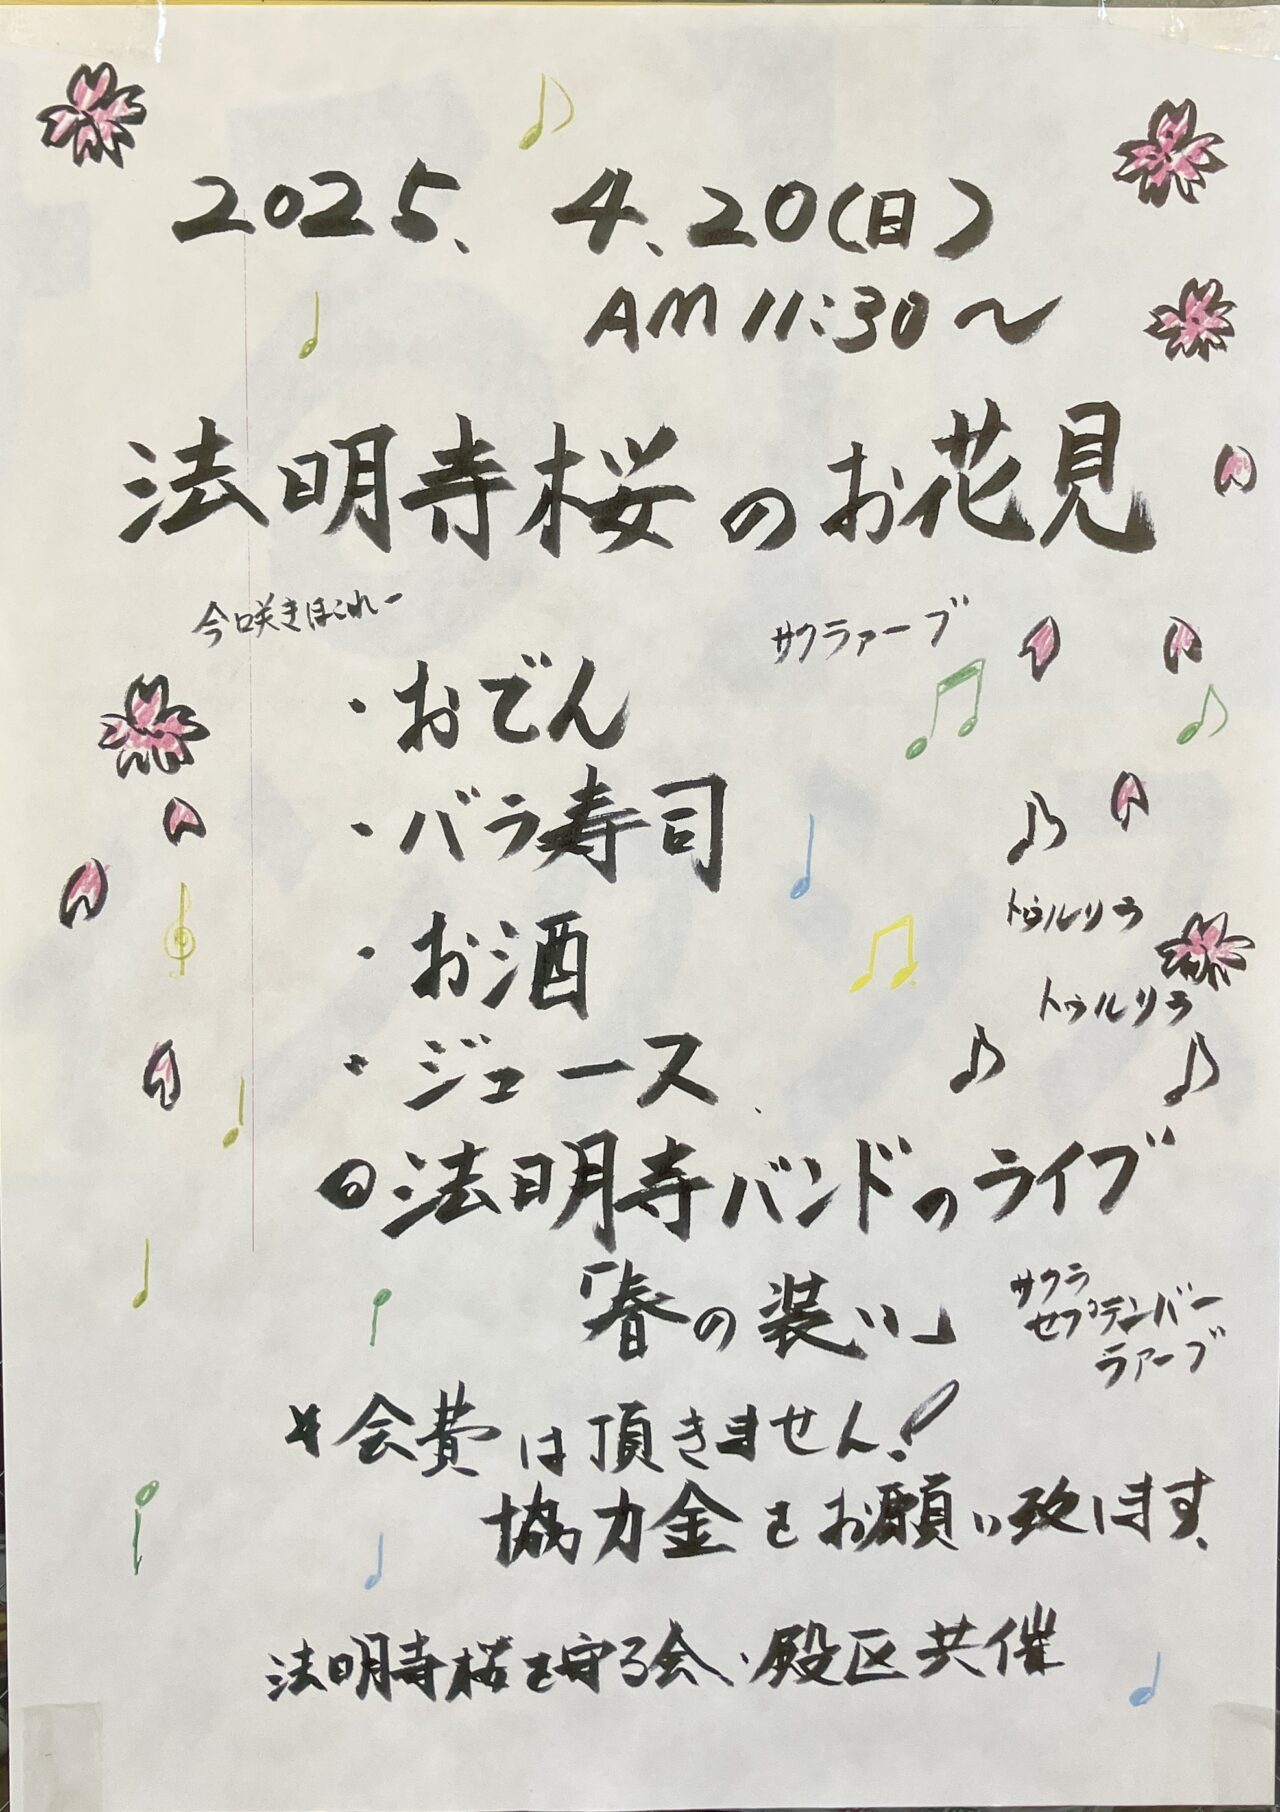 2025. 4.20(日)
AM 11:30〜
法明寺桜のお花見
今咲きほこれー
サクラァーブ
・おでん
・バラ寿司
・お酒
トゥルリラ
トゥルリラ
・ジュース
◎法明寺バンドのライブ
「春の装い」
サクラ
セプテンバー
ラァーブ
*会費は頂きません!
協力金をお願い致します.
法明寺桜を守る会、殿区共催